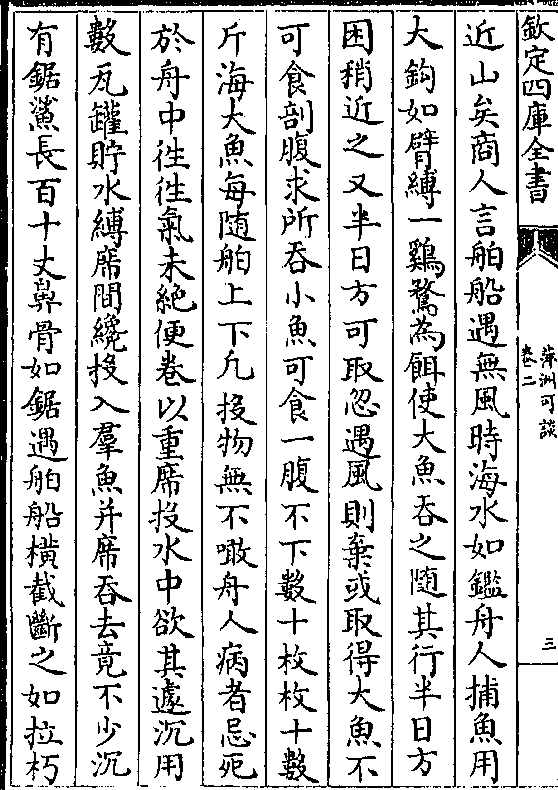 欽定四庫全書
萍洲可談
卷二
三
近山矣商人言舶船遇無風時海水如鑑舟人捕魚用
大鉤如臂縛一鷄鶩為餌使大魚吞之隨其行半日方
困稍近之又半日方可取忽遇風則棄或取得大魚不
可食剖腹求所吞小魚可食一腹不下數十枚枚十數
斤海大魚每隨舶上下凡投物無不噉舟人病者忌死
於舟中徃徃氣未絶便卷以重席投水中欲其遽沉用
數瓦鑵貯水縛席間纔投入羣魚并席吞去竟不少沉
有鋸鯊長百十丈鼻骨如鋸遇舶船橫截斷之如拉朽